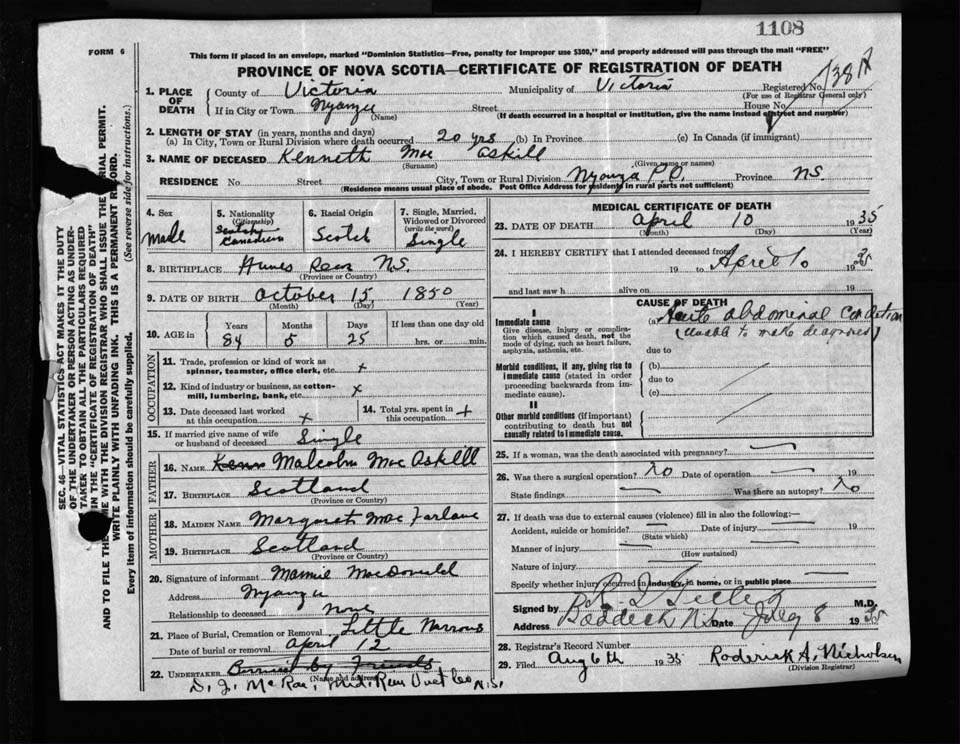 1108
FORM 6
This form if placed in an envelope, marked "Dominion Statistics—Free, penalty for improper use $300," and properly addressed will pass through the mail "FREE"
PROVINCE OF NOVA SCOTIA—CERTIFICATE OF REGISTRATION OF DEATH
1. PLACE OF DEATH
County of Victoria Municipality of Victoria Registered No.
(For use of Registrar General only)
If in City or Town Nyanza Street House No.
(Name) (If death occurred in a hospital or institution, give the name instead of street and number)
2. LENGTH OF STAY (in years, months and days)
(a) In City, Town or Rural Division where death occurred 20 yrs (b) In Province (c) In Canada (if immigrant)
3. NAME OF DECEASED Kenneth Mac Askill
(Surname) (Given name or names)
RESIDENCE No. Street City, Town or Rural Division Nyanza P.O. Province N.S.
(Residence means usual place of abode. Post Office Address for residents in rural parts not sufficient)
4. Sex Male
5. Nationality (Citizenship) Scotch Canadian
6. Racial Origin Scotch
7. Single, Married, Widowed or Divorced (write the word) Single
8. BIRTHPLACE N.S.
(Province or Country)
9. DATE OF BIRTH October 15, 1850
(Month) (Day) (Year)
10. AGE in
Years Months Days If less than one day old
84 5 25 hrs. or min.
OCCUPATION
11. Trade, profession or kind of work as spinner, teamster, office clerk, etc. x
12. Kind of industry or business, as cotton-mill, lumbering, bank, etc. x
13. Date deceased last worked at this occupation x
14. Total yrs. spent in this occupation x
15. If married give name of wife or husband of deceased Single
FATHER
16. NAME Malcolm Mac Askill
17. BIRTHPLACE Scotland
(Province or Country)
MOTHER
18. MAIDEN NAME Margaret Mac Farlane
19. BIRTHPLACE Scotland
(Province or Country)
20. Signature of informant Mamie MacDonald
Address Nyanza
Relationship to deceased none
21. Place of Burial, Cremation or Removal Little Narrows
Date of burial or removal April 12
22. UNDERTAKER Burried by Friends
(Name and address)
D. J. McRae, Mid. Vict Co N.S.
MEDICAL CERTIFICATE OF DEATH
23. DATE OF DEATH April 10 1935
(Month) (Day) (Year)
24. I HEREBY CERTIFY that I attended deceased from
19 to April 10 1935
and last saw h alive on 19
CAUSE OF DEATH
I
Immediate cause (a) Acute abdominal condition
Give disease, injury or complication which caused death, not the mode of dying, such as heart failure, asphyxia, asthenia, etc.
(Unable to make diagnosis)
due to
Morbid conditions, if any, giving rise to immediate cause (stated in order proceeding backwards from immediate cause).
(b)
due to
(c)
II
Other morbid conditions (if important) contributing to death but not causally related to immediate cause.
25. If a woman, was the death associated with pregnancy? —
26. Was there a surgical operation? No Date of operation — 19
State findings — Was there an autopsy? No
27. If death was due to external causes (violence) fill in also the following:—
Accident, suicide or homicide? — Date of injury — 19
(State which)
Manner of injury —
(How sustained)
Nature of injury —
Specify whether injury occurred in industry, in home, or in public place —
Signed by M.D.
Address Baddeck N.S. Date July 8 1935
28. Registrar's Record Number
29. Filed Aug 6th 1935 Roderick A. Nicholson
(Division Registrar)
SEC. 46—VITAL STATISTICS ACT MAKES IT THE DUTY
OF THE UNDERTAKER OR PERSON ACTING AS UNDER-
TAKER TO OBTAIN ALL THE PARTICULARS REQUIRED
IN THE "CERTIFICATE OF REGISTRATION OF DEATH"
AND TO FILE THE SAME WITH THE DIVISION REGISTRAR WHO SHALL ISSUE THE BURIAL PERMIT.
WRITE PLAINLY WITH UNFADING INK. THIS IS A PERMANENT RECORD.
Every item of information should be carefully supplied. (See reverse side for instructions.)